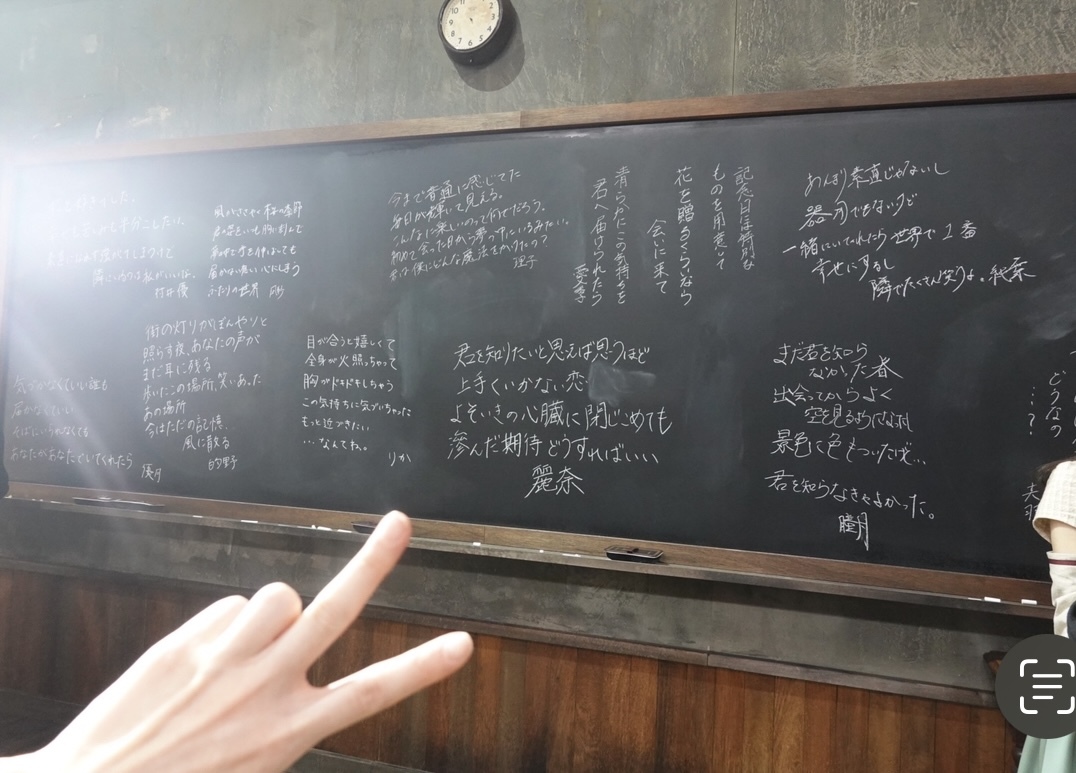 今まで普通に感じてた
毎日が輝いて見える。
こんなに楽しいのって何でだろう。
初めて会った日から夢の中にいるみたい。
君は僕にどんな魔法をかけたの?
理子
記念日は特別な
ものを用意して
花を贈るくらいなら
会いに来て
清らかにこの気持ちを
君へ届けられたら
愛季
あんまり素直じゃないし
器用でもないけど
一緒にいてくれたら世界で1番
幸せにするし
隣でたくさん笑うよ。純葉
隣にいるのは私がいいな。
村井優
風がささやく
ふたりの世界
街の灯りがぼんやりと
照らす夜、あなたの声が
まだ耳に残る
歩いたこの場所、笑いあった
あの場所
今はただの記憶、
風に散る
的野
気づかなくていい誰も
届かなくていい
そばにいられなくても
あなたがあなたでいてくれたら
優月
目が合うと嬉しくて
全身が火照っちゃって
胸がドキドキしちゃう
この気持ちに気づいちゃった
もっと近づきたい
…なんてね。
りか
君を知りたいと思えば思うほど
上手くいかない恋
よそいきの心臓に閉じこめても
滲んだ期待どうすればいい
麗奈
まだ君を知ら
なかった春
出会ってからよく
空を見るようになった
景色に色もついたけど…
君を知らなきゃよかった。
瞳月
どうなの
…?